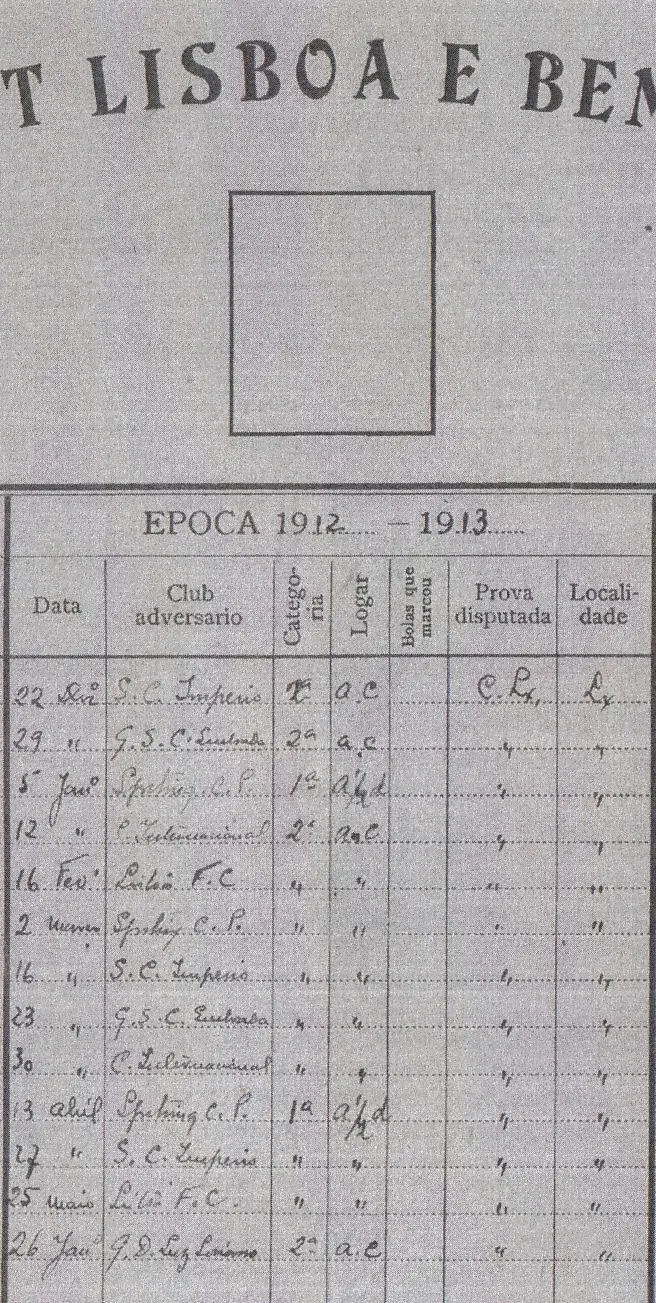 T LISBOA E BEN
EPOCA 1912 — 1913
Data Club adversario Catego-ria Logar Bolas que marcou Prova disputada Locali-dade
22 S. C. Imperio a.c C. Lx, Lx
29 " G. S. C. 2ª a.c " "
5 Janº Sporting C. P. 1ª a ½ d " "
12 " C. Internacional 2ª a.c " "
16 Fevº F. C " " " "
2 Março Sporting C. P. " " " "
16 " S. C. Imperio " " " "
23 " G. S. C. " " " "
30 " C. Internacional " " " "
13 abril Sporting C. P. 1ª a ½ d " "
27 " S. C. Imperio " " " "
25 maio F. C. " " " "
26 Janº G. D. Luz Soriano 2ª a.c " "